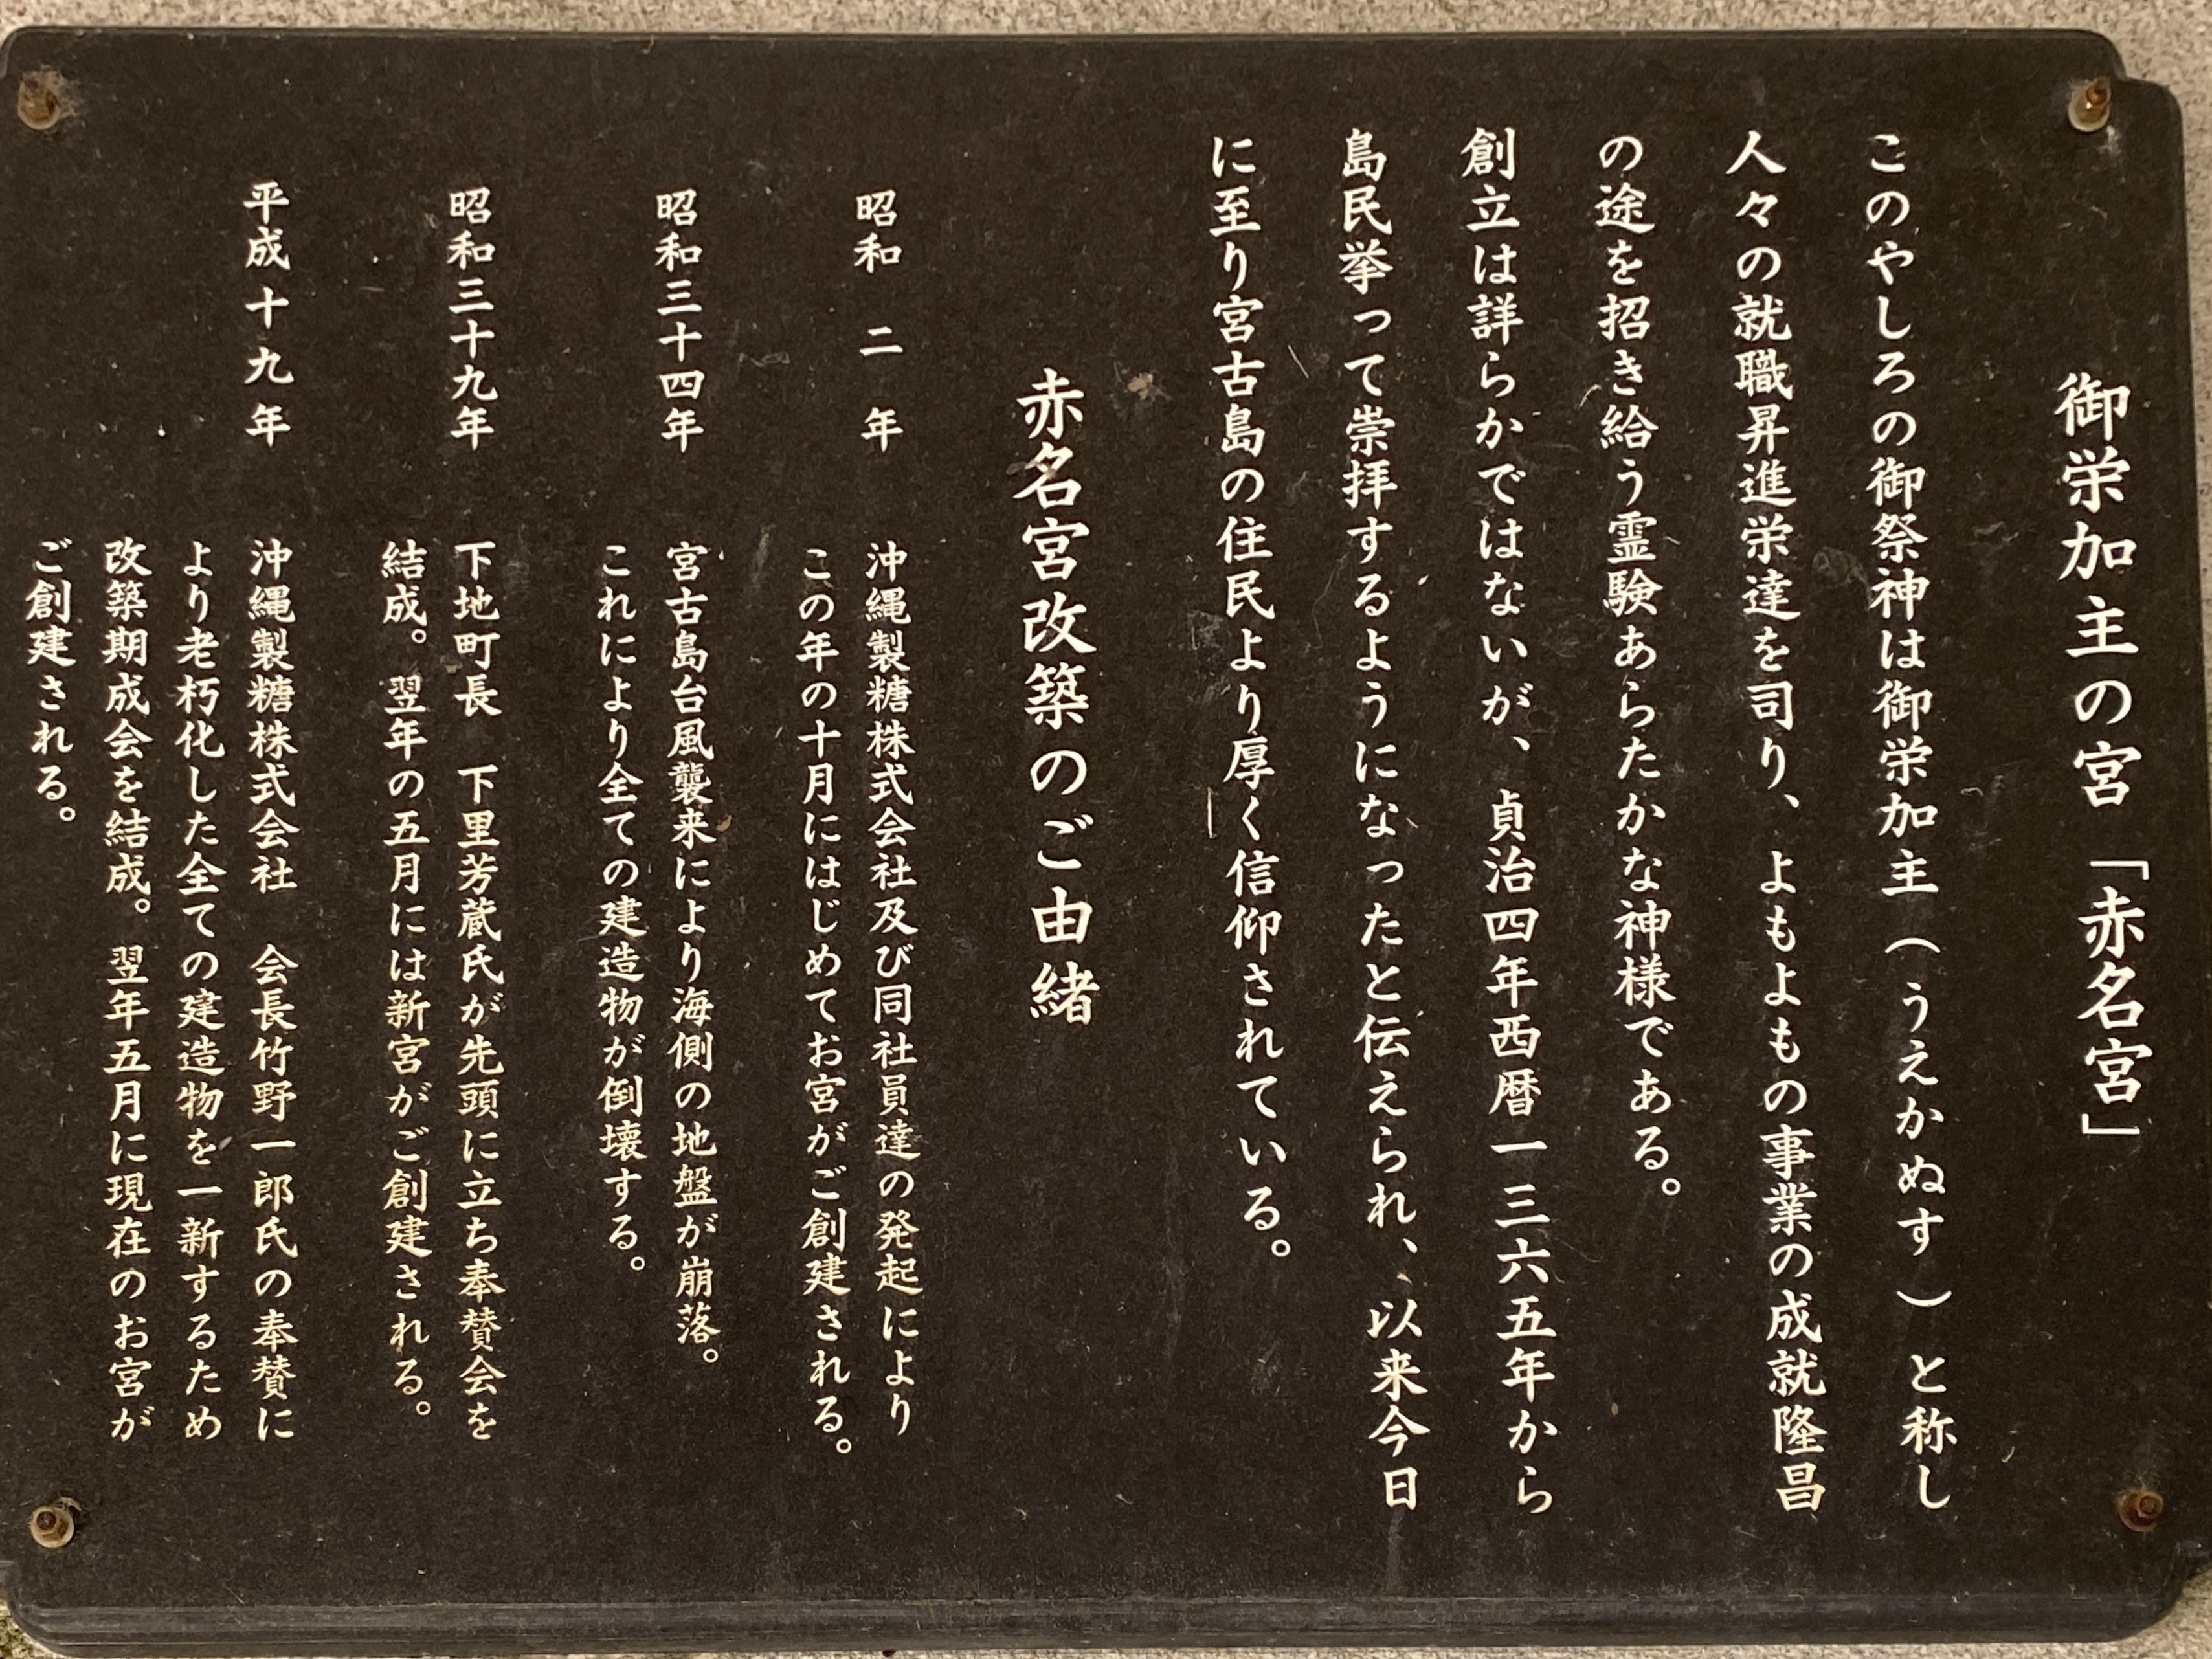 御栄加主の宮「赤名宮」
このやしろの御祭神は御栄加主（うえかぬす）と称し
人々の就職昇進栄達を司り、よもよもの事業の成就隆昌
の途を招き給う霊験あらたかな神様である。
創立は詳らかではないが、貞治四年西暦一三六五年から
島民挙って崇拝するようになったと伝えられ、以来今日
に至り宮古島の住民より厚く信仰されている。
赤名宮改築のご由緒
昭和 二 年 沖縄製糖株式会社及び同社員達の発起により
この年の十月にはじめてお宮がご創建される。
昭和三十四年 宮古島台風襲来により海側の地盤が崩落。
これにより全ての建造物が倒壊する。
昭和三十九年 下地町長 下里芳蔵氏が先頭に立ち奉賛会を
結成。翌年の五月には新宮がご創建される。
平成十九年 沖縄製糖株式会社 会長竹野一郎氏の奉賛に
より老朽化した全ての建造物を一新するため
改築期成会を結成。翌年五月に現在のお宮が
ご創建される。